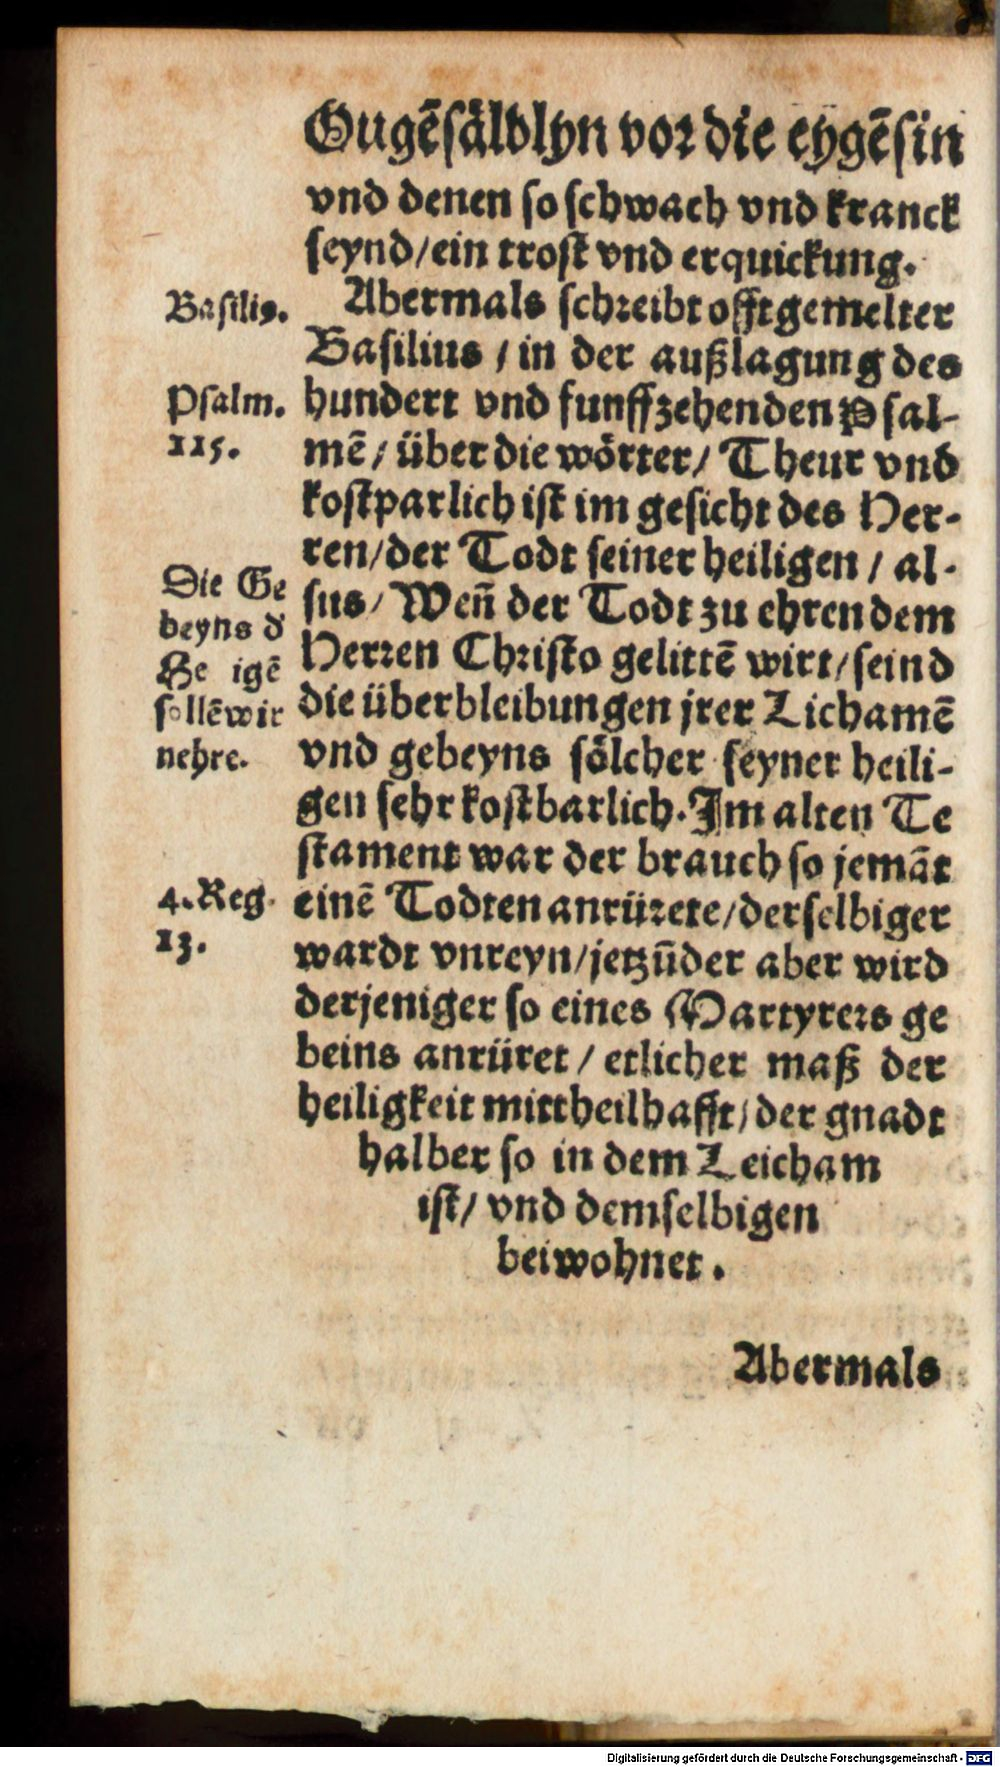 Gugēsäldlyn vor die eygēsin
vnd denen so schwach vnd kranck
seynd/ein trost vnd erquickung.
Basiliꝰ.
Abermals schreibt offtgemelter
Basilius / in der außlagung des
Psalm.
115.
hundert vnd funffzehenden Psal-
mē/ über die wörter/ Theur vnd
kostparlich ist im gesicht des Her-
ren/der Todt seiner heiligen / al-
Die Ge
beyns d'
He igē
sollēwir
nehre.
sus/ Weñ der Todt zu ehren dem
Herren Christo gelittē wirt/seind
die überbleibungen jrer Lichamē
vnd gebeyns sölcher seyner heili-
gen sehr kostbarlich. Im alten Te
stament war der brauch so jemāt
4. Reg.
13.
einē Todten anrürete/derselbiger
wardt vnreyn/jetzūder aber wird
derjeniger so eines Martyrers ge
beins anrüret / etlicher maß der
heiligkeit mittheilhafft/ der gnadt
halber so in dem Leicham
ist/ vnd demselbigen
beiwohnet.
Abermals
Digitalisierung gefördert durch die Deutsche Forschungsgemeinschaft - DFG